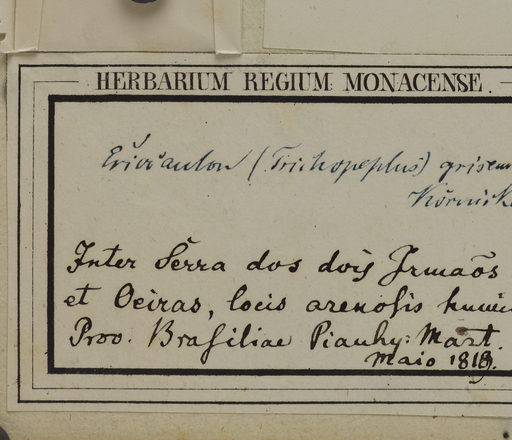 HERBARIUM REGIUM MONACENSE.
Eriocaulon (Trichopeplus) griseum
Körnicke
Inter Serra dos dois Irmaõs
et Oeiras, locis arenosis humi
Prov. Brasiliae Piauhy: Mart.
Maio 1819.